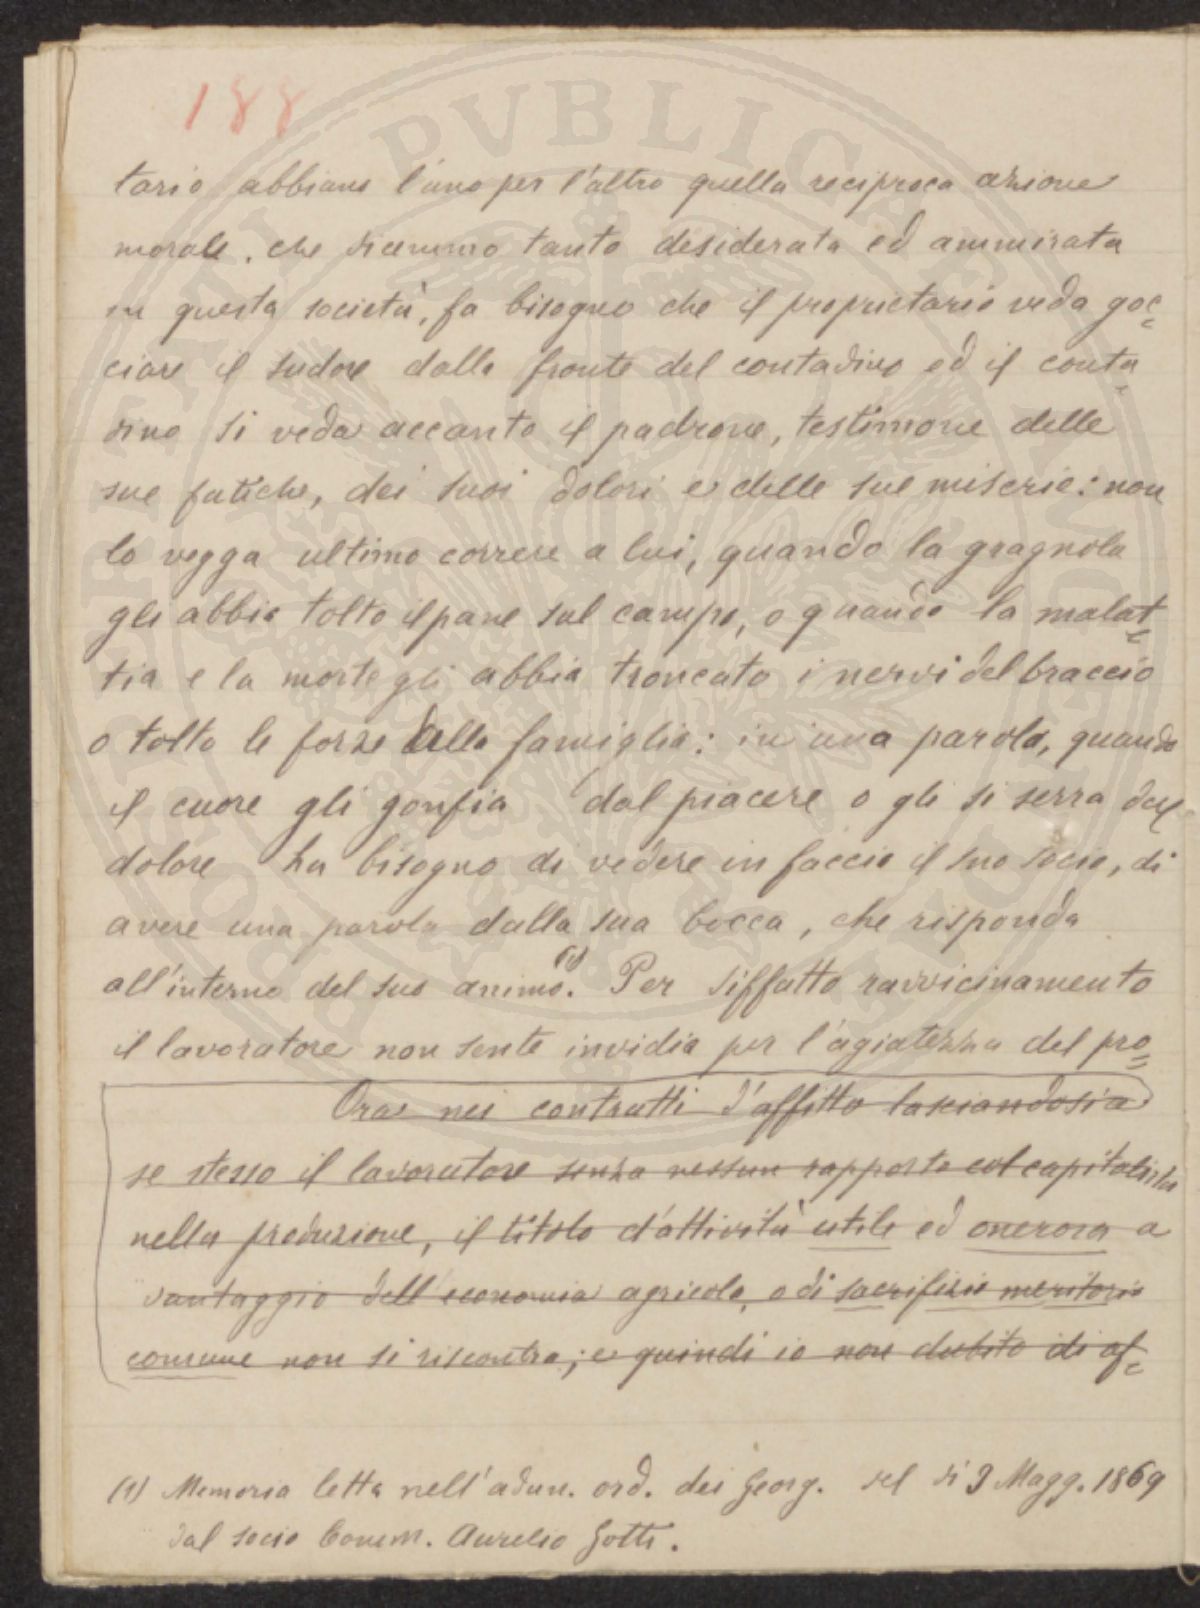 188
tario abbiano l'uno per l'altro quella reciproca azione
morale, che dicemmo tanto desiderata ed ammirata
in questa società, fa bisogno che il proprietario veda goc=
ciare il sudore dalla fronte del contadino ed il conta=
dino si veda accanto il padrone, testimone delle
sue fatiche, dei suoi dolori e delle sue miserie: non
lo vegga ultimo correre a lui, quando la gragnola
gli abbia tolto il pane sul campo, o quando la malat=
tia e la morte gli abbia troncato i nervi del braccio
o tolto le forze alla famiglia: in una parola, quando
il cuore gli gonfia dal piacere o gli si serra dal
dolore ha bisogno di vedere in faccia il suo socio, di
avere una parola dalla sua bocca, che risponda
all'interno del suo animo.(1) Per siffatto ravvicinamento
il lavoratore non sente invidia per l'agiatezza del pro=
Ora nei contratti d'affitto lasciandosi a
se stesso il lavoratore senza nessun rapporto col capitalista
nella produzione, il titolo d'attività utile ed onerosa a
vantaggio dell'economia agricola, o di sacrifizio meritorio
comune non si riscontra; e quindi io non dubito di af=
(1) Memoria letta nell'adun. ord. dei Georg. del dì 9 Magg. 1869
dal socio Comm. Aurelio Gotti.
PVBLICA